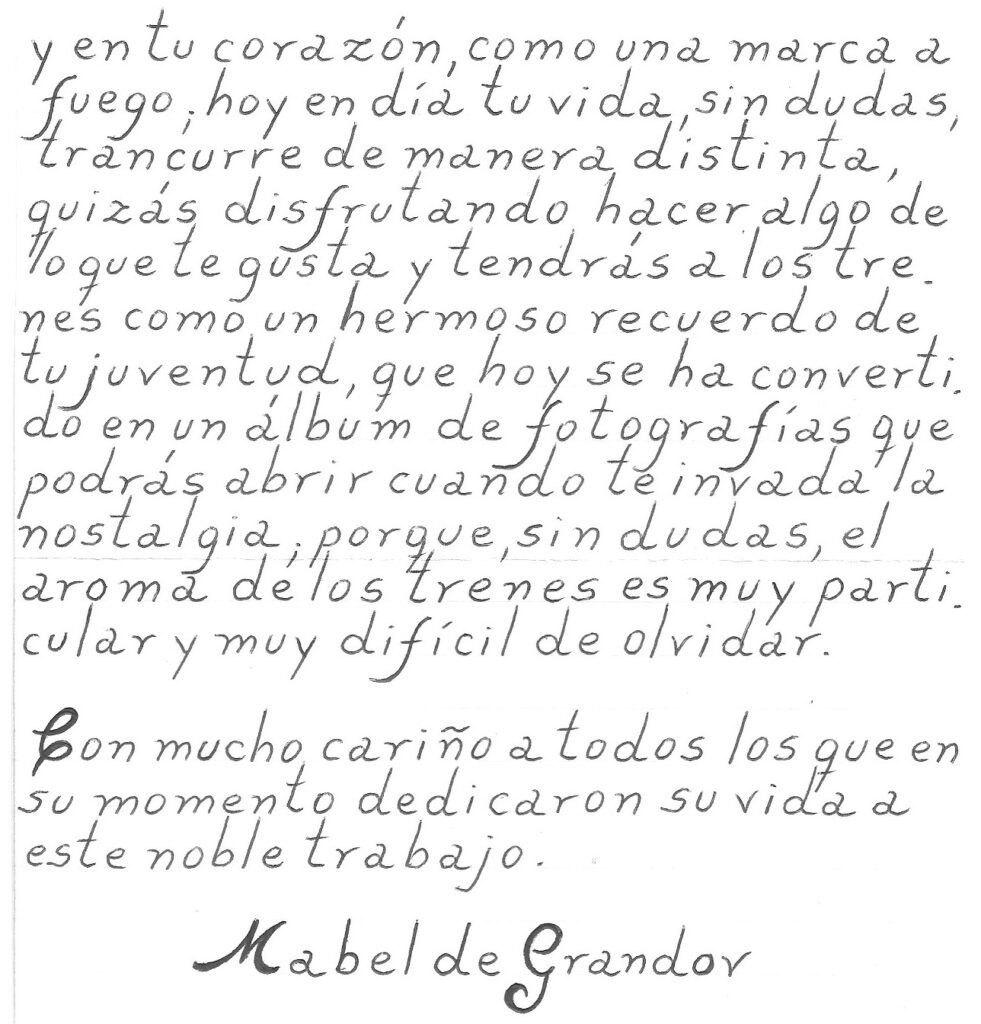 y en tu corazón, como una marca a
fuego; hoy en día tu vida, sin dudas,
trancurre de manera distinta,
quizás disfrutando hacer algo de
lo que te gusta y tendrás a los tre-
nes como un hermoso recuerdo de
tu juventud, que hoy se ha converti-
do en un álbum de fotografías que
podrás abrir cuando te invada la
nostalgia; porque, sin dudas, el
aroma de los trenes es muy parti-
cular y muy difícil de olvidar.
Con mucho cariño a todos los que en
su momento dedicaron su vida a
este noble trabajo.
Mabel de Grandov